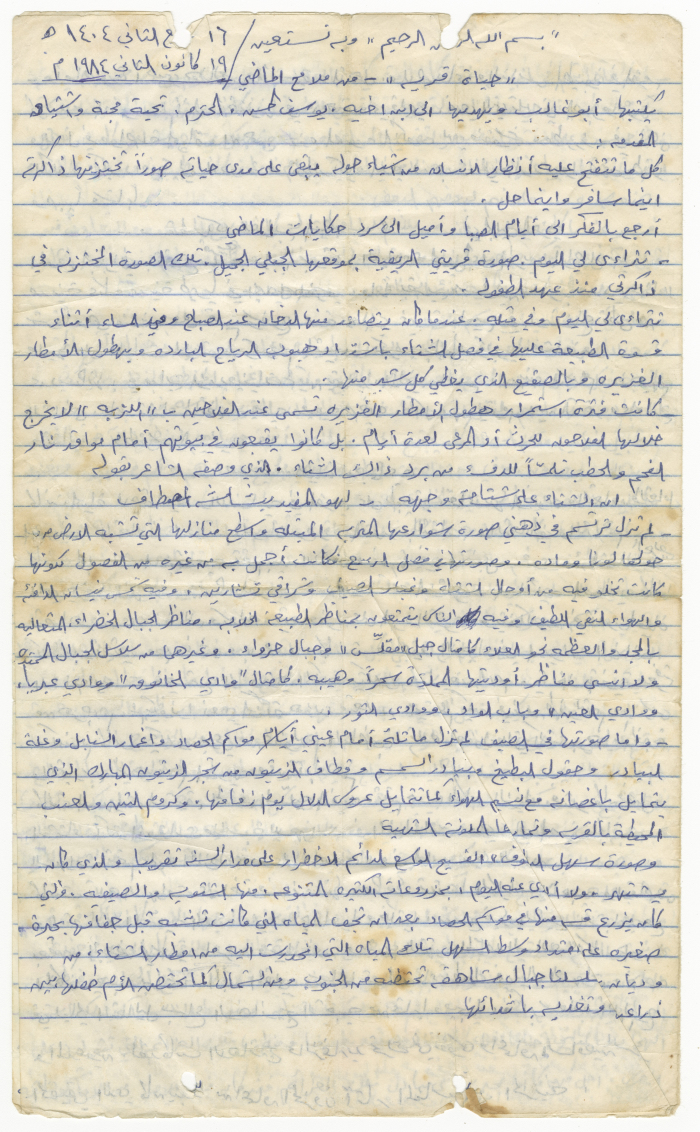 "بسم الله الرحمن الرحيم" وبه نستعين / ١٦ ع الثاني ١٤٠٤ هـ
"حياة قرية" - من ملامح الماضي / ١٩ كانون الثاني ١٩٨٤ م
يكتبها أبو غالب ويهديها الى ابن اخيه، يوسف حسن، المحترم، تحية محبة واشتياق
القدمه:
كل ما تتفتح عليه أنظار الانسان من أشياء حوله يبقى على مدى حياته صوراً تختزنها ذاكرته
اينما سافر واينما حل.
أرجع بالفكر الى أيام الصبا وأميل الى سرد حكايات الماضي
- تتراءى لي اليوم. صورة قريتي الريفية بموقعها الجبلي الجميل. تلك الصورة المختزنه في
ذاكرتي منذ عهد الطفوله.
تتراءى لي اليوم وفي مخيلتي. عندما كان يتصاعد منها الدخان عند الصباح وفي المساء أثناء
قسوة الطبيعة عليها في فصل الشتاء باشتداد هبوب الرياح البارده وبهطول الأمطار
الغزيره وبالصقيع الذي يغطي كل شبر منها.
- كانت فترة استمرار هطول الأمطار الغزيره تسمى عند الفلاحين ب "اللزبه" لا يخرج
خلالها الفلاحون للحرث أو المرعى لعدة أيام. بل كانوا يقبعون في بيوتهم أمام مواقد نار
الفحم والحطب تلمساً للدفء من برد ذالك الشتاء. الذي وصفه الشاعر بقوله
ان الشتاء على شتامة وجهه - لهو المفيد
- لم تزل ترتسم في ذهني صورة شوارعها المتربه المبتله واسطح منازلها التي تشبه الارض من
حولها لونا وماده. وصورتها في فصل الربيع فكانت أجمل به من غيره من الفصول كونها
كانت تخلو فيه من أوحال الشتاء وغبار الصيف وشراقي تشارين. وفيه شمس نيسان الدافئه
والهواء النقي اللطيف وفيه الناس يتمتعون بمناظر الطبيعه الخلابه. مناظر الجبال الخضراء المتعاليه
بالمجد والعظمه نحو العلاء كأمثال جبل "مقلّس" وجبال حزواء. وغيرهما من سلاسل الجبال الممتده
ولا انسى مناظر أوديتها المملوءة سحراً وهيبه. كأمثال "وادي الخانوق" ووادي عبديا.
ووادي العين وباب الواد، ووادي النور.
- واما صورتها في الصيف لم تزل ماثلة أمام عيني أيام مواسم الحصاد واغمار السنابل وغلة
البيادر وحقول البطيخ وبيادر السمسم وقطاف الزيتون من شجر الزيتون المبارك الذي
يتمايل باغصانه مع نسيم الهواء كما تتمايل عروس الدلال يوم زفافها. وكروم التين والعنب
المحيطة بالقريه وثمارها الملونة الشهيه
وصورة سهل البطوف الفسيح الواسع الدائم الاخضرار على مدار السنه تقريبا والذي كان
يشتهر. ولا أدري عنه اليوم، بمزروعاته الكثيره المتنوعه. منها الشتويه والصيفيه. والتي
كان يزرع قسم منها في موسم الحصاد بعد ان تجف المياه التي كانت تشبه قبل جفافها بحيرة
صغيره على امتداد وسط السهل تلك المياه التي انحدرت اليه من امطار الشتاء، من
وديان. سلسلتا جبال شاهقه تحتضنه من الجنوب ومن الشمال كما تحتضن الأم طفلها بين
ذراعيها وتغذيه باثدائها.